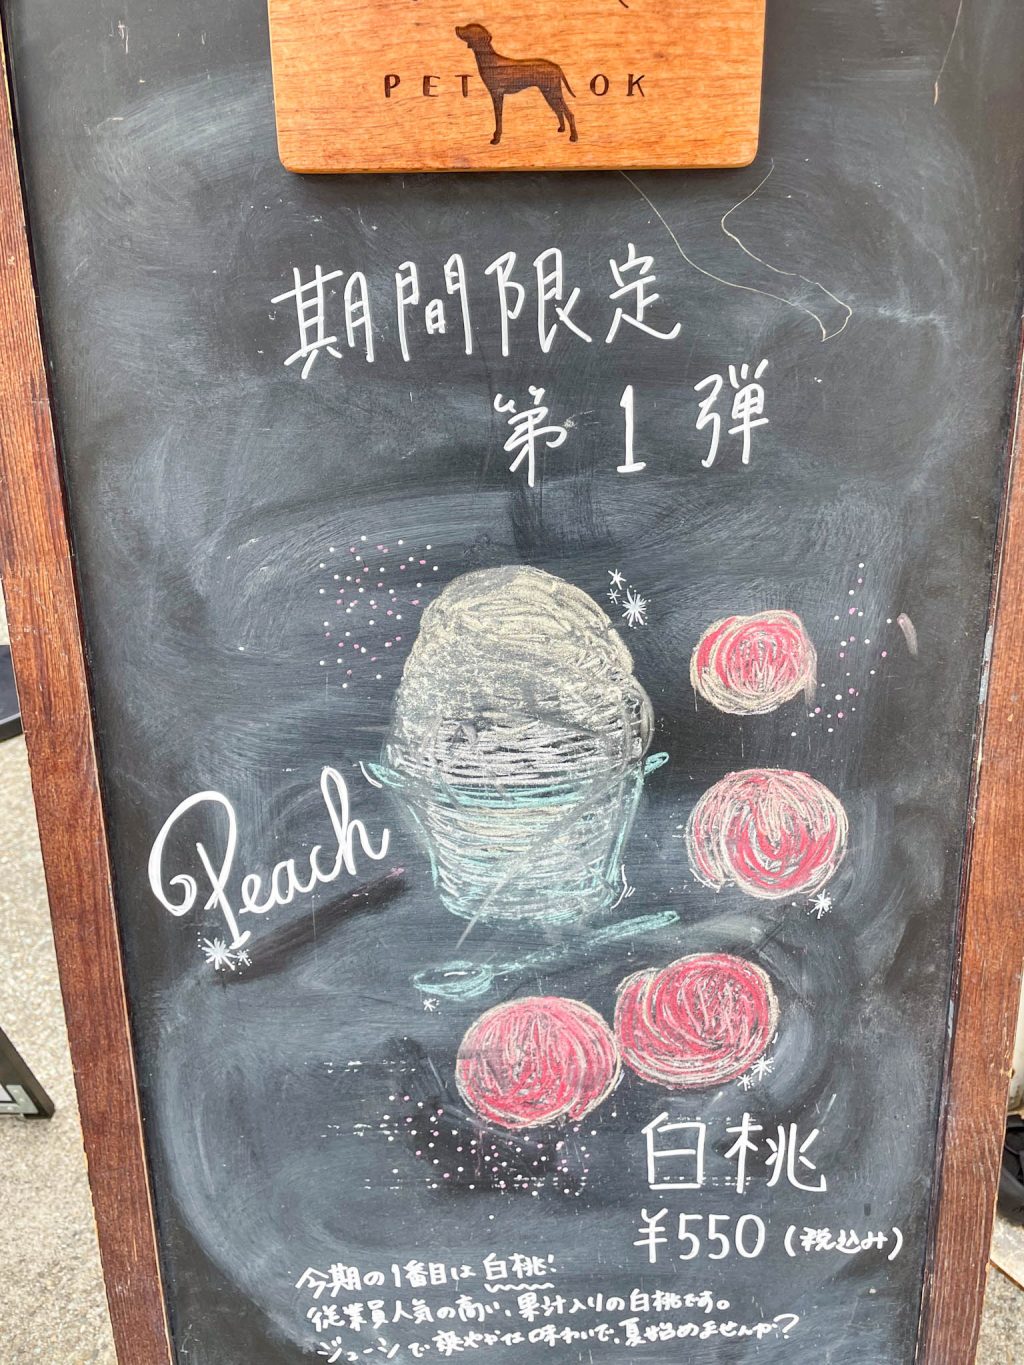 PET OK
期間限定
第1弾
Peach
白桃
¥550 (税込み)
今期の1番目は白桃!
従業員人気の高い、果汁入りの白桃です。
ジューシで爽やかな味わいで、夏始めませんか?